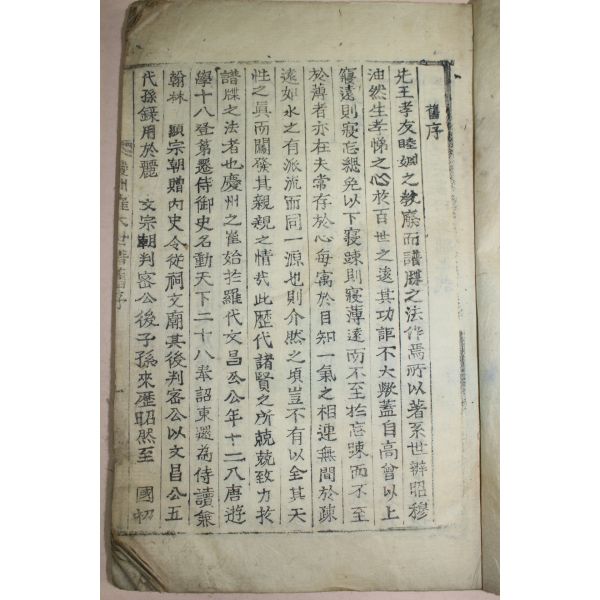 舊序
先王孝友睦婣之敎廢而譜牒之法作焉所以著系世辨昭穆
油然生孝悌之心於百世之遠其功詎不大歟蓋自高曾以上
寢遠則寢忘緦免以下寢踈則寢薄遠而不至於忘踈而不至
於薄者亦在夫常存於心每寓於目知一氣之相連無間於疎
遠如水之有派流而同一源也則介然之頃豈不有以全其天
性之眞而闡發其親親之情哉此歷代諸賢之所兢兢致力於
譜牒之法者也慶州之崔始於羅代文昌公公年十二入唐遊
學十八登第遷侍御史名動天下二十八奉詔東還為侍讀兼
翰林 顯宗朝贈内史令從祠文廟其後判密公以文昌公五
代孫錄用於麗 文宗朝判密公後子孫來歷昭然至 國初
慶州崔氏世譜舊序